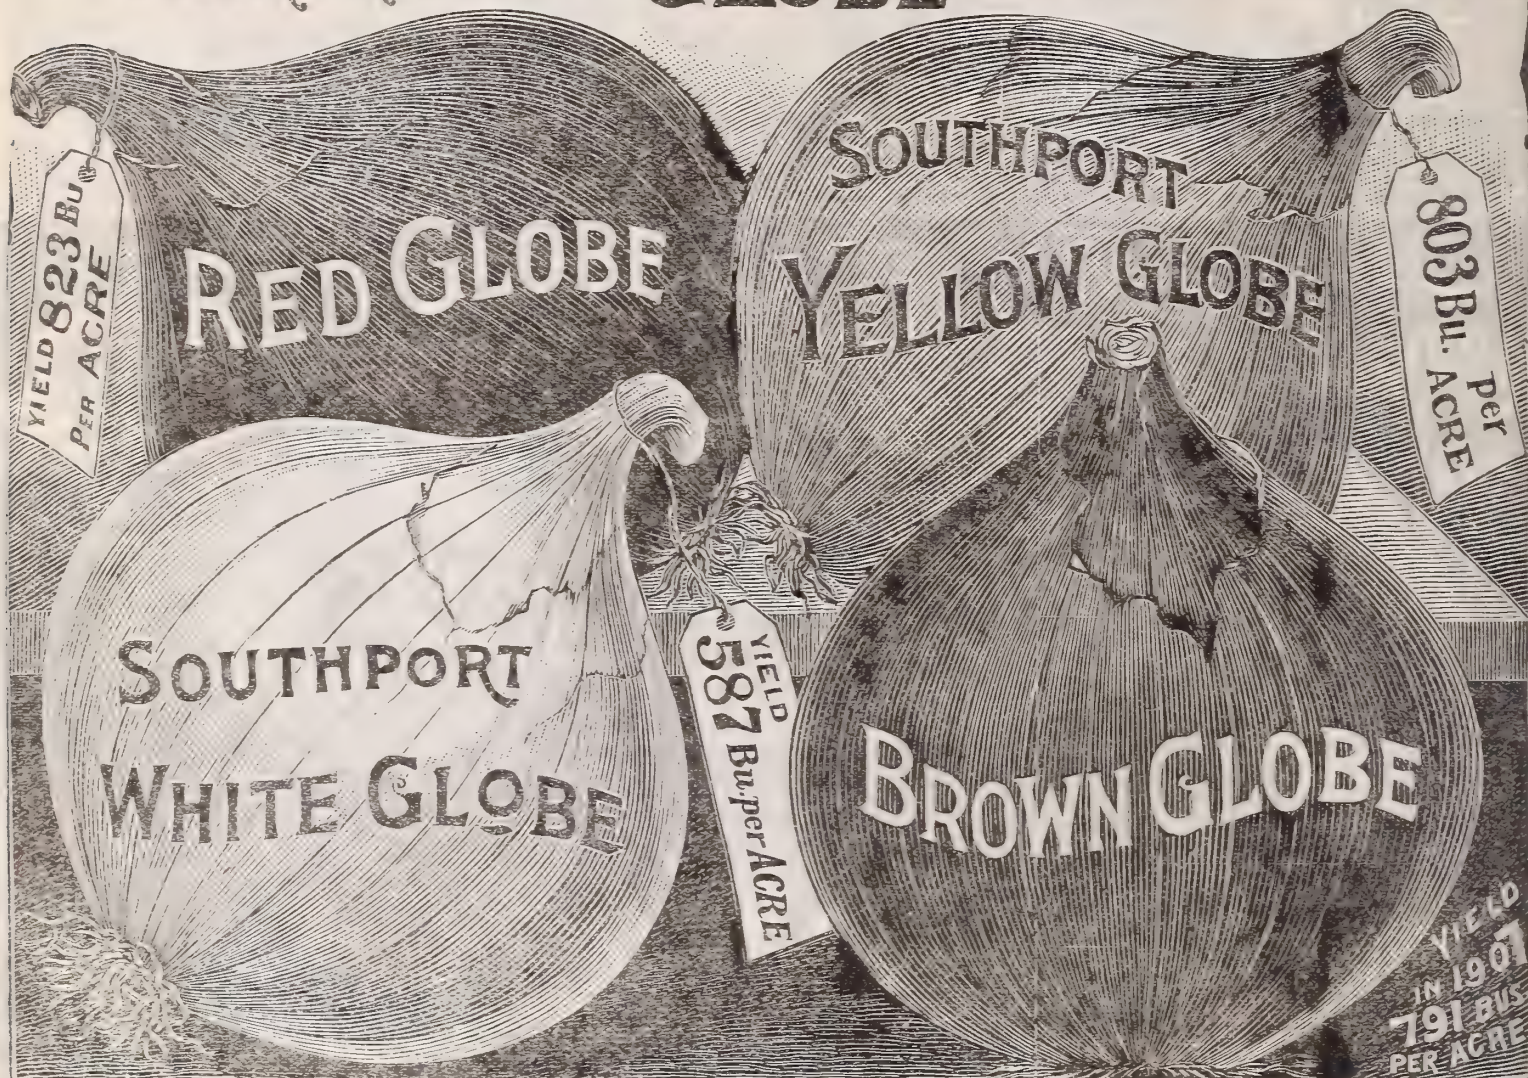 GLOBE
RED GLOBE
YIELD 823 Bu
PER ACRE
SOUTHPORT
YELLOW GLOBE
803 Bu. per
ACRE
SOUTHPORT
WHITE GLOBE
YIELD
587 Bu. per ACRE
BROWN GLOBE
YIELD
IN 1907
791 BUS.
PER ACRE